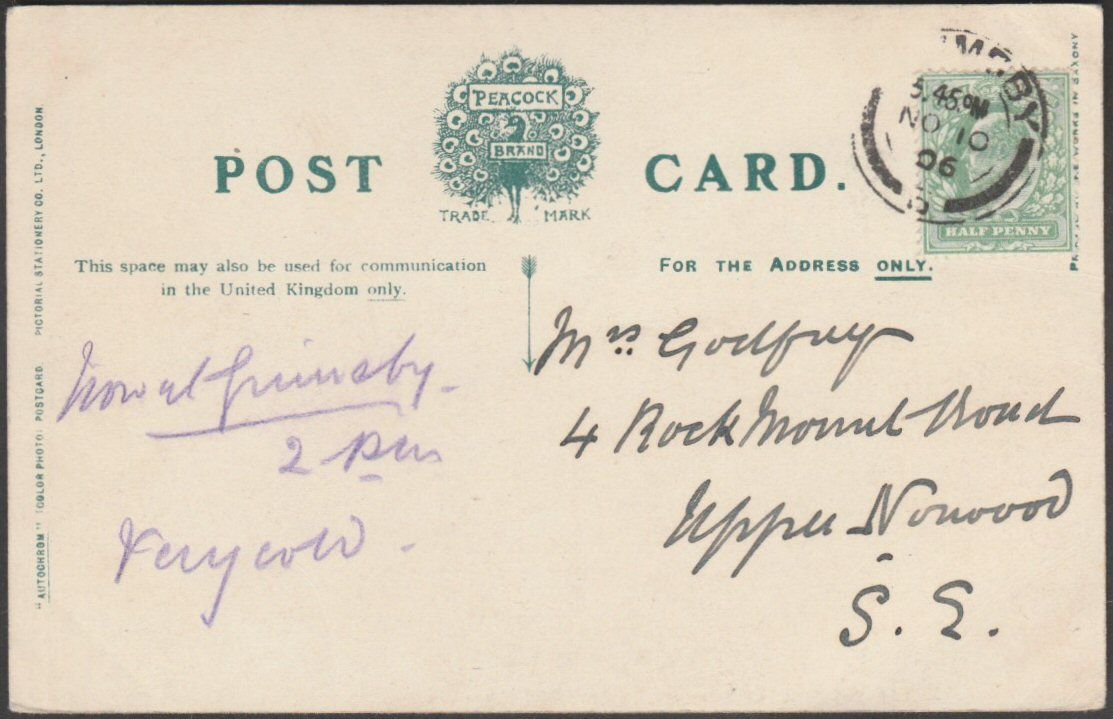 PEACOCK
BRAND
POST CARD.
TRADE MARK
This space may also be used for communication
in the United Kingdom only.
FOR THE ADDRESS ONLY.
"AUTOCHROM" (COLOR PHOTO) POSTCARD. PICTORIAL STATIONERY CO. LTD., LONDON.
MSBY
3.45 PM
NO 10
06
HALF PENNY
WORKS IN SAXONY
Now at Grimsby -
2 pm
Very cold -
Mrs. Godfrey
4 Rock Mount Road
Upper Norwood
S. E.